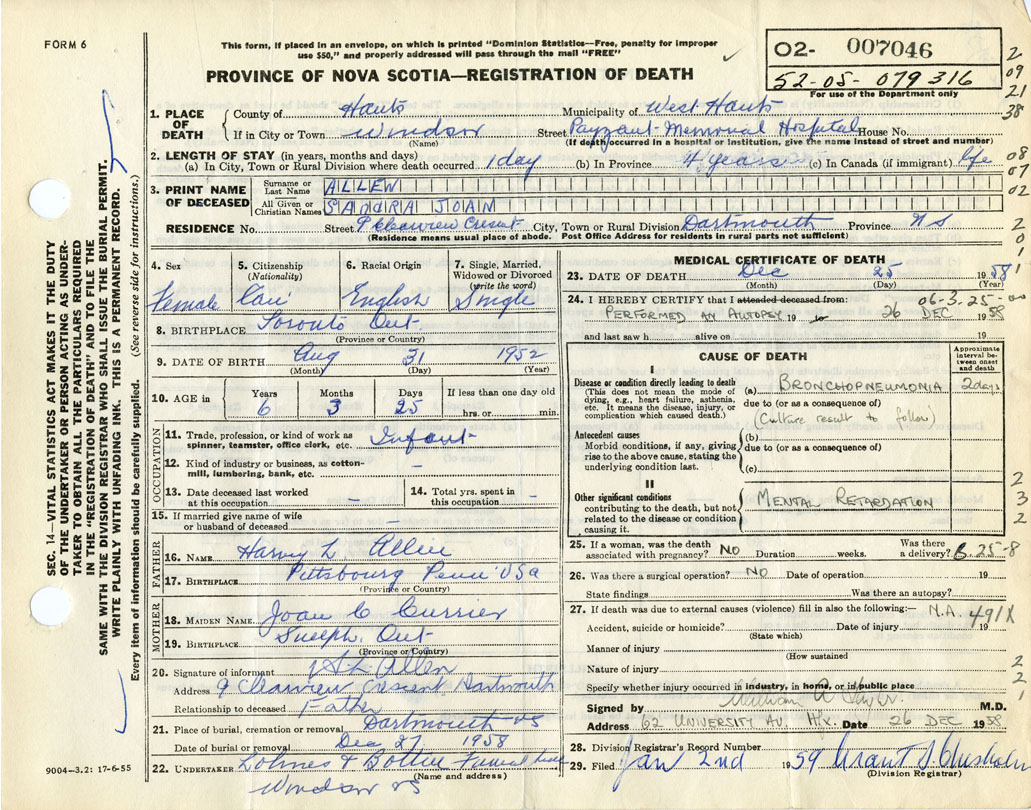 FORM 6
This form, if placed in an envelope, on which is printed "Dominion Statistics—Free, penalty for improper
use $50," and properly addressed will pass through the mail "FREE"
PROVINCE OF NOVA SCOTIA—REGISTRATION OF DEATH
02- 007046
52-05-079316
For use of the Department only
2
09
21
38
1. PLACE OF DEATH County of Hants Municipality of West Hants
If in City or Town Windsor Street Payzant Memorial Hospital House No.
(Name) (If death occurred in a hospital or institution, give the name instead of street and number)
2. LENGTH OF STAY (in years, months and days)
(a) In City, Town or Rural Division where death occurred 1 day (b) In Province 4 years (c) In Canada (if immigrant) life
08
07
02
3. PRINT NAME OF DECEASED
Surname or Last Name ALLEN
All Given or Christian Names SANDRA JOAN
RESIDENCE No. Street 9 Clearview Crescent City, Town or Rural Division Dartmouth Province NS
(Residence means usual place of abode. Post Office Address for residents in rural parts not sufficient)
2
0
1
1
4. Sex Female
5. Citizenship (Nationality) Can
6. Racial Origin English
7. Single, Married, Widowed or Divorced (write the word) Single
8. BIRTHPLACE Toronto Ont.
(Province or Country)
9. DATE OF BIRTH Aug 31 1952
(Month) (Day) (Year)
10. AGE in Years 6 Months 3 Days 25 If less than one day old
hrs. or min.
OCCUPATION
11. Trade, profession, or kind of work as spinner, teamster, office clerk, etc. Infant
12. Kind of industry or business, as cotton-mill, lumbering, bank, etc. –
13. Date deceased last worked at this occupation –
14. Total yrs. spent in this occupation –
15. If married give name of wife or husband of deceased –
FATHER
16. NAME Harry L Allen
17. BIRTHPLACE Pittsbourg Penn' USA
(Province or Country)
MOTHER
18. MAIDEN NAME Joan C Currier
19. BIRTHPLACE Guelph. Ont
(Province or Country)
20. Signature of informant H L Allen
Address 9 Clearview Crescent Dartmouth
Relationship to deceased Father
21. Place of burial, cremation or removal Dartmouth NS
Date of burial or removal Dec 27 1958
22. UNDERTAKER Funeral Home
(Name and address)
Windsor NS
MEDICAL CERTIFICATE OF DEATH
23. DATE OF DEATH Dec 25 1958
(Month) (Day) (Year)
06-3.25-
24. I HEREBY CERTIFY that I attended deceased from:
PERFORMED AN AUTOPSY 19 to 26 DEC 1958
and last saw h alive on 19
CAUSE OF DEATH
Approximate interval between onset and death
I
Disease or condition directly leading to death
(This does not mean the mode of dying, e.g., heart failure, asthenia, etc. It means the disease, injury, or complication which caused death.)
(a) BRONCHOPNEUMONIA 2 days
due to (or as a consequence of)
(Culture result to follow)
Antecedent causes
Morbid conditions, if any, giving rise to the above cause, stating the underlying condition last.
(b)
due to (or as a consequence of)
(c)
II
Other significant conditions
contributing to the death, but not related to the disease or condition causing it.
MENTAL RETARDATION
2
3
2
25. If a woman, was the death associated with pregnancy? NO Duration weeks. Was there a delivery? 6.25-8
26. Was there a surgical operation? NO Date of operation 19
State findings Was there an autopsy?
27. If death was due to external causes (violence) fill in also the following:— N.A. 491X
Accident, suicide or homicide? Date of injury 19
(State which)
Manner of injury
(How sustained
Nature of injury
Specify whether injury occurred in industry, in home, or in public place
2
2
1
Signed by William A M.D.
Address 62 UNIVERSITY AV. Hfx. Date 26 DEC 1958
28. Division Registrar's Record Number
29. Filed Jan 2nd 1959 Grant S. Chisholm
(Division Registrar)
9004—3.2: 17-6-55
SEC. 14—VITAL STATISTICS ACT MAKES IT THE DUTY
OF THE UNDERTAKER OR PERSON ACTING AS UNDER-
TAKER TO OBTAIN ALL THE PARTICULARS REQUIRED
IN THE "REGISTRATION OF DEATH" AND TO FILE THE
SAME WITH THE DIVISION REGISTRAR WHO SHALL ISSUE THE BURIAL PERMIT.
WRITE PLAINLY WITH UNFADING INK. THIS IS A PERMANENT RECORD.
Every item of information should be carefully supplied. (See reverse side for instructions.)